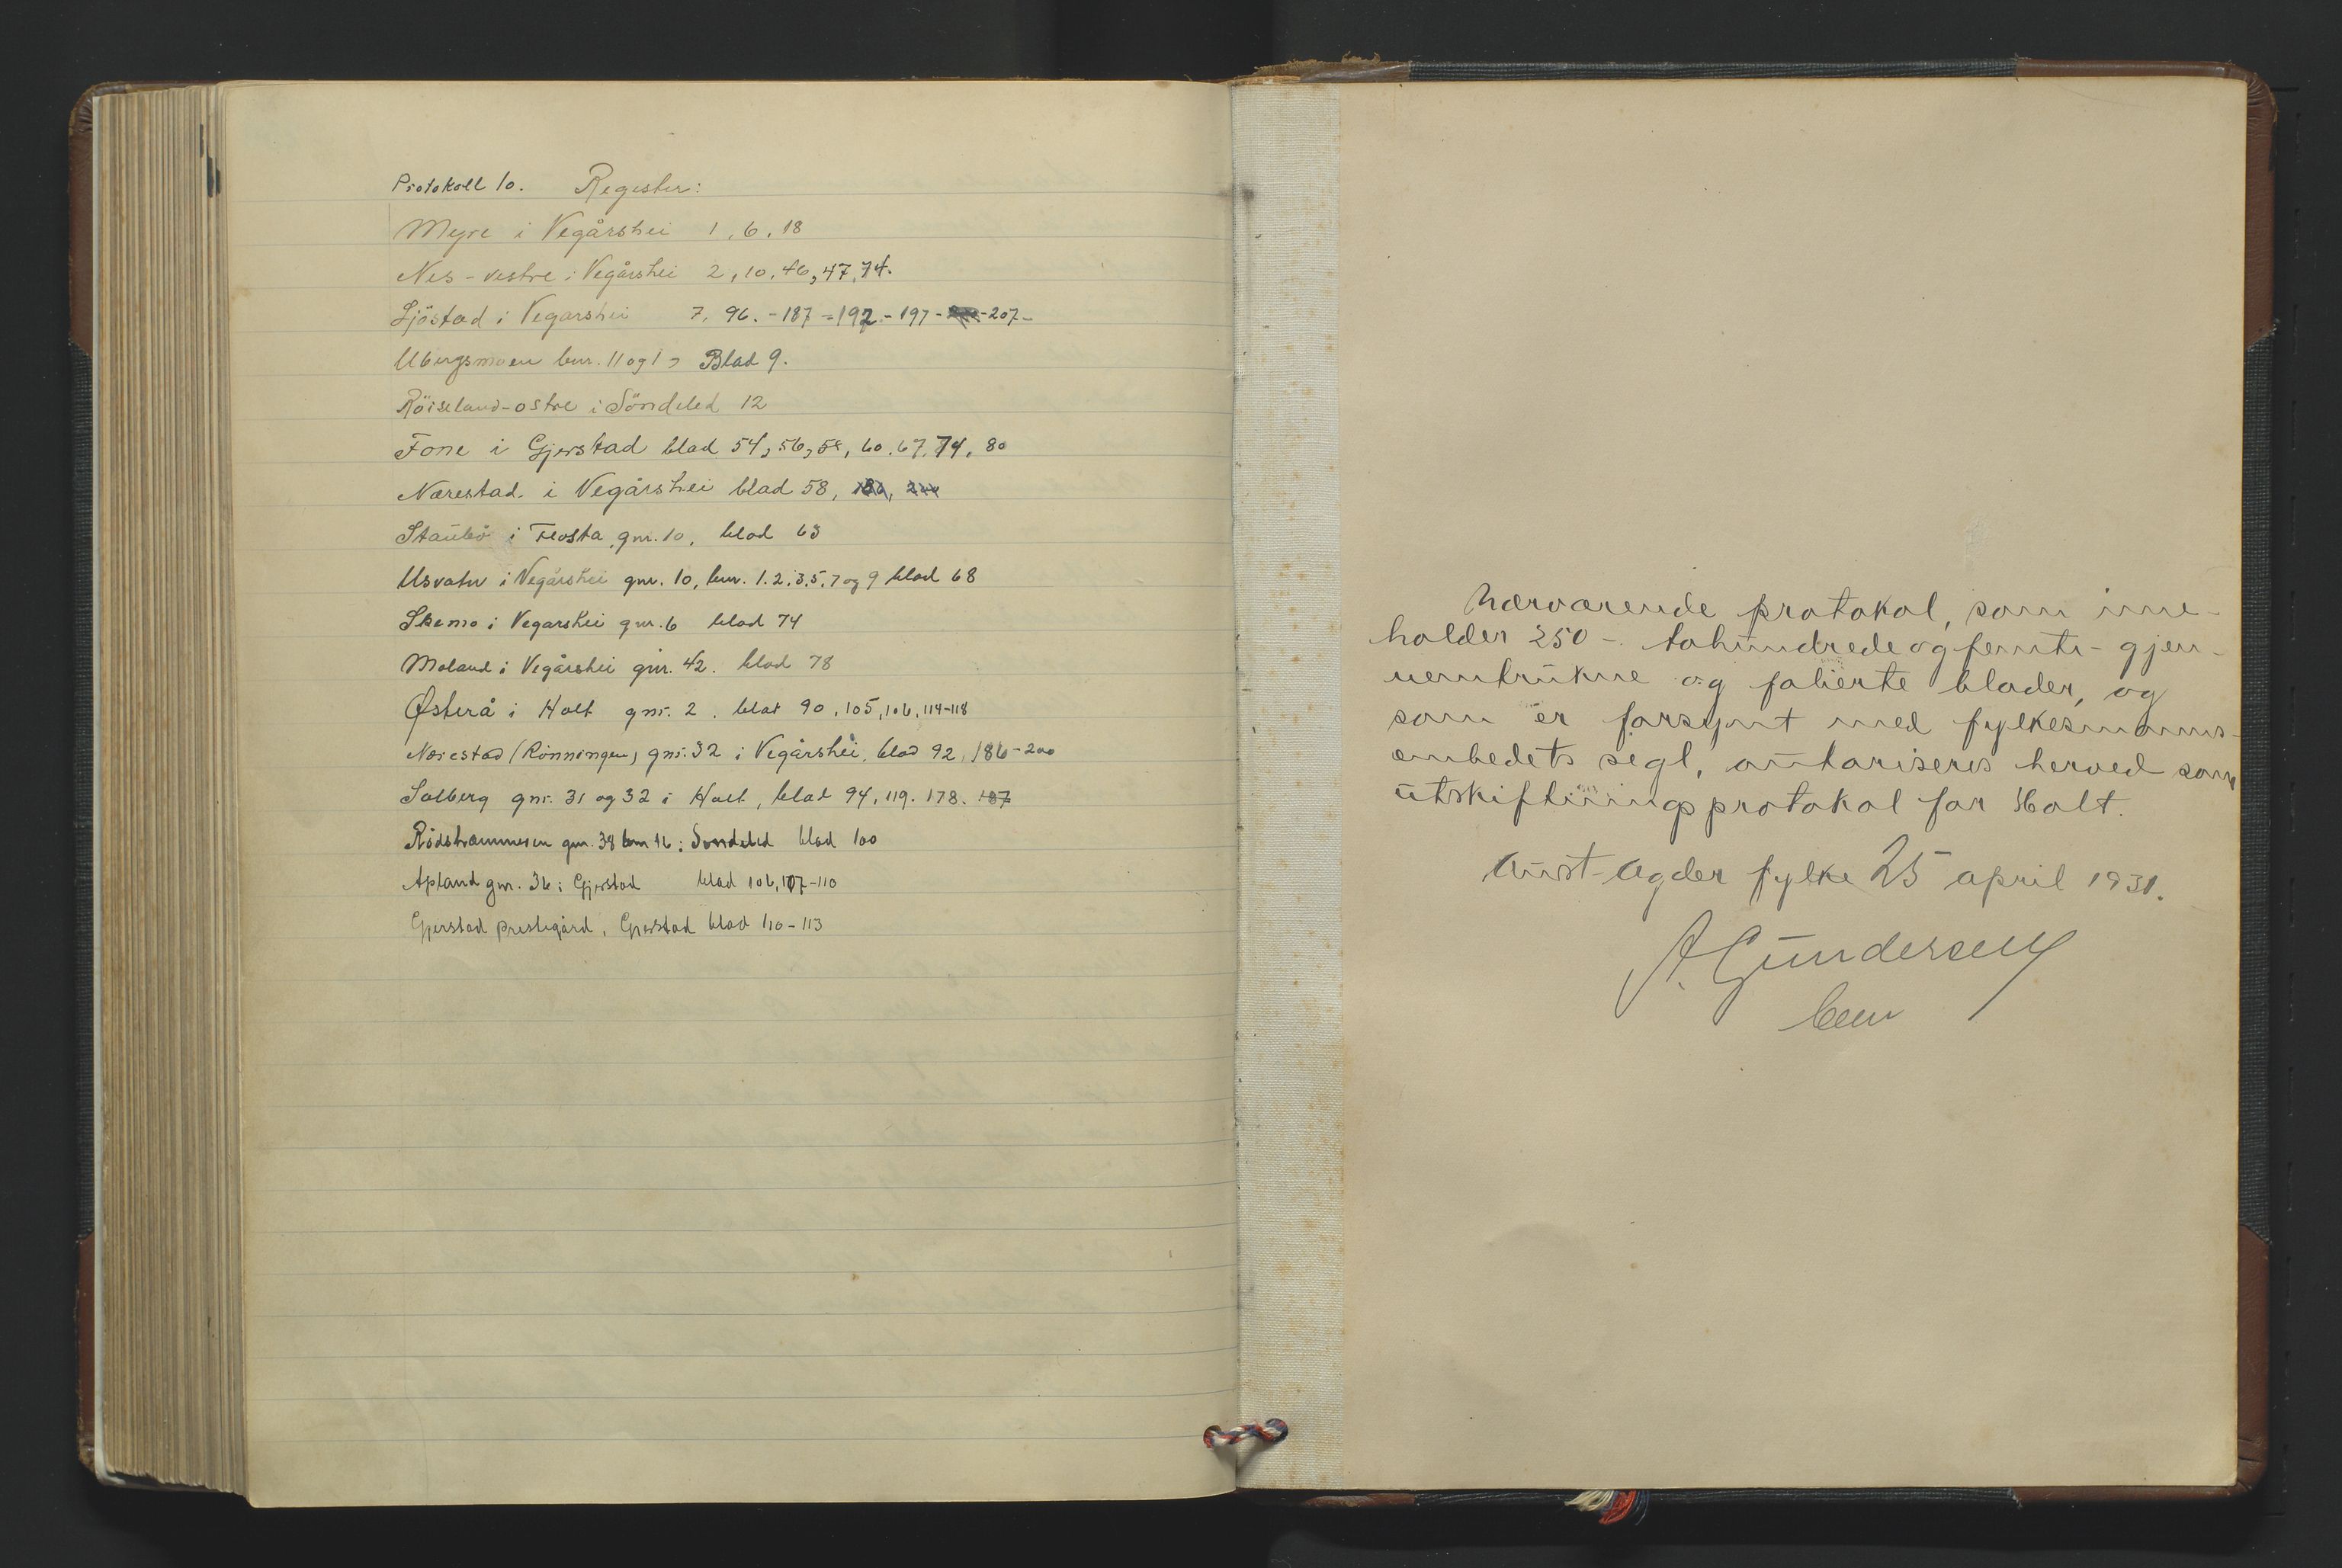 Protokoll 10. Register:
Myre i Vegårshei 1, 6, 18
Nes-vestre i Vegårshei 2, 10, 46, 47, 74.
Sjöstad i Vegarshei 7, 96. - 187 - 192 - 197 - 207 -
Ubergsmoen bnr. 11 og 1 Blad 9.
Röiseland-ostre i Söndeled 12
Fone i Gjerstad blad 54, 56, 58, 60, 67, 74, 80
Nærestad i Vegårshei blad 58,
Staubö i Flosta, gnr. 10, blad 63
Usvatn i Vegårshei gnr. 10, bnr. 1. 2. 3. 5. 7 og 9 blad 68
Skemo i Vegarshei gnr. 6 blad 74
Moland i Vegårshei gnr. 42. blad 78
Østerå i Holt gnr. 2. blad 90, 105, 106, 114-118
Nærestad (Rönningen) gnr. 32 i Vegårshei, blad 92, 186-200
Solberg gnr. 31 og 32 i Holt, blad 94, 119. 178. 187
gnr. 38 bnr 16 i Söndeled blad 100
Apland gnr. 36 i Gjerstad blad 106, 107-110
Gjerstad prestegård, Gjerstad blad 110-113
Nærværende protokol, som inne-
holder 250 - tohundrede og femti - gjen-
nemtrukne og folierte blader, og
som er forsynt med fylkesmanns-
embedets segl, autoriseres herved som
utskiftningsprotokol for Holt.
Aust-Agder fylke 25 april 1931.
A. Gundersen